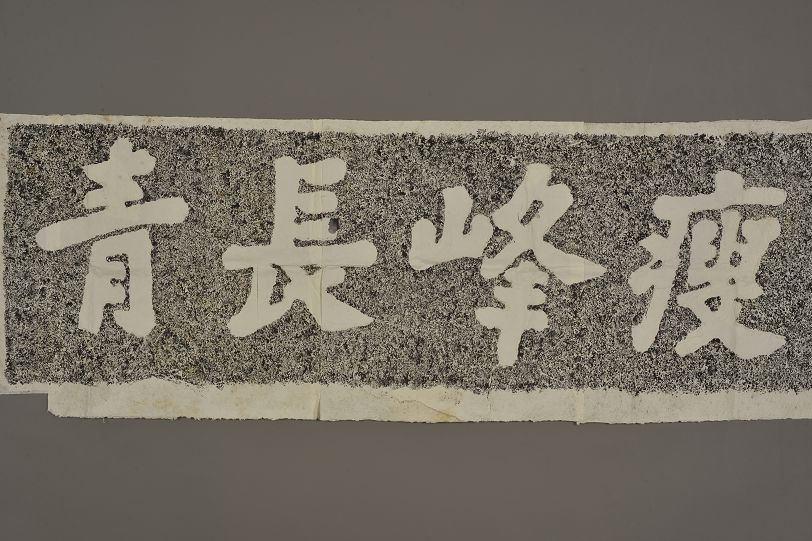 瘦峰長青